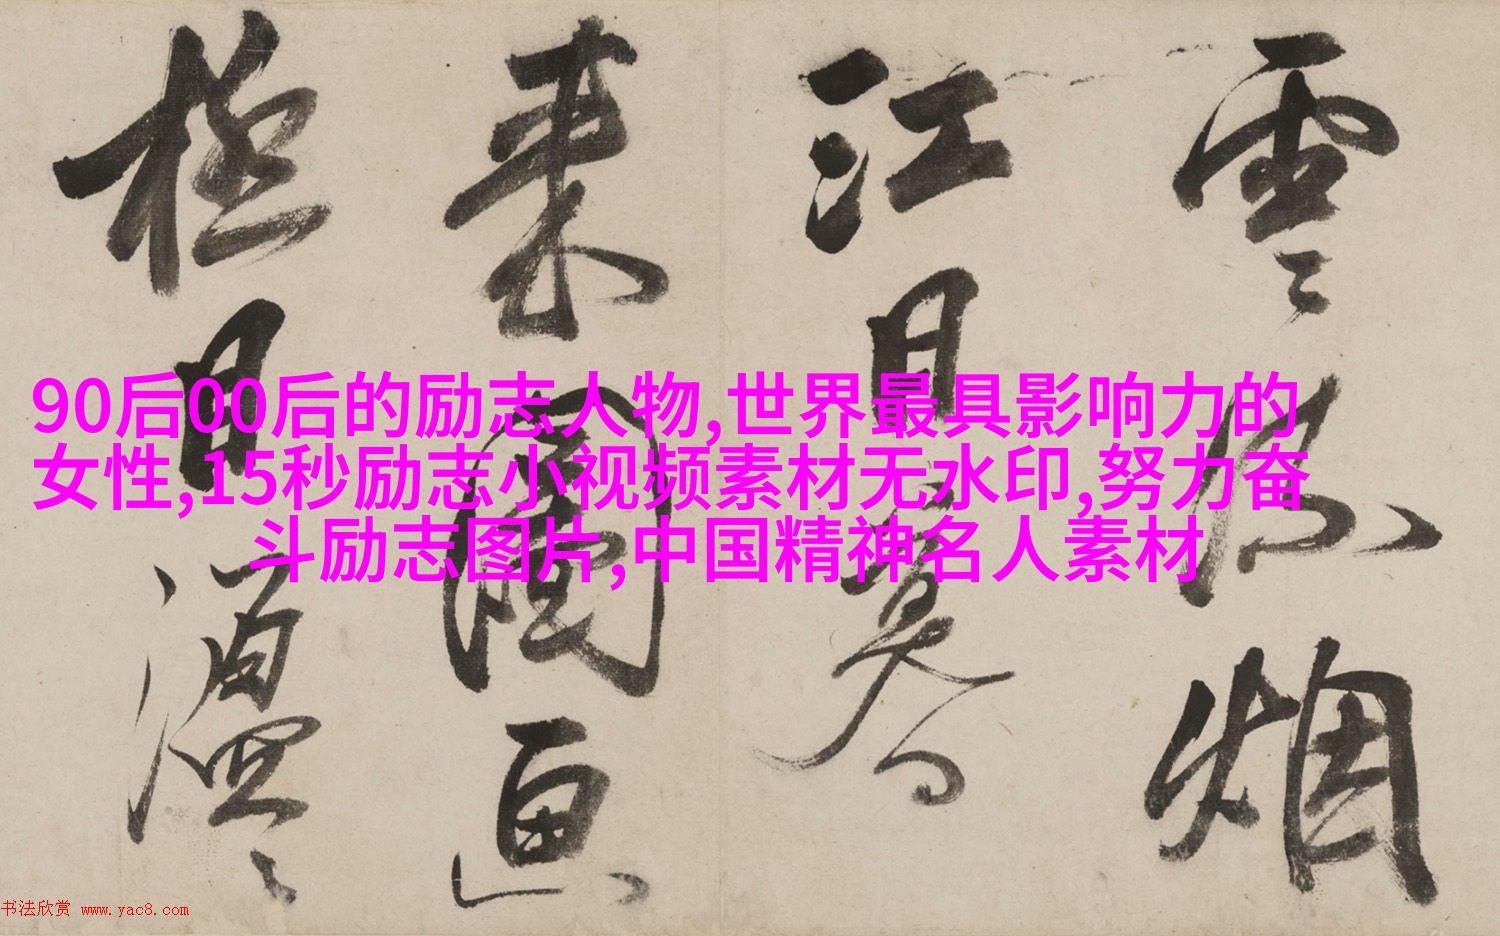 90后00后的励志人物,世界最具影响力的
女性,15秒励志小视频素材无水印,努力奋
斗励志图片,中国精神名人素材
雲〻烟
江日暮
来圖画
極目
书法欣赏 www.yac8.com